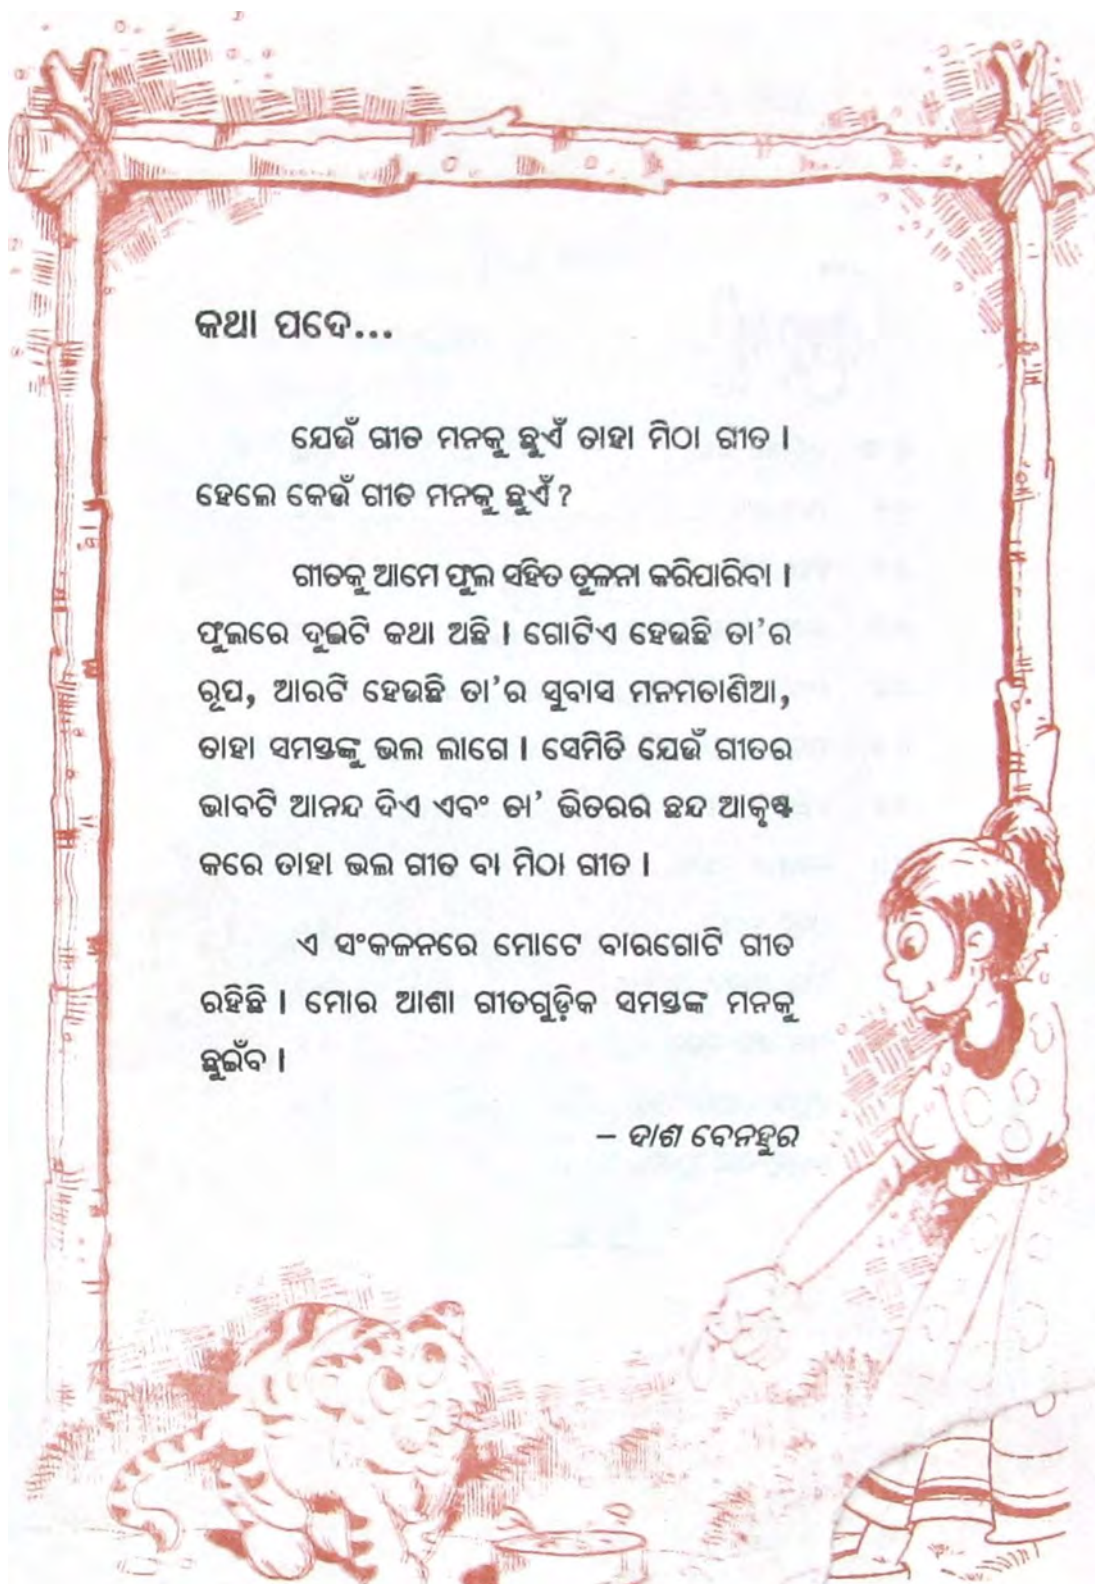 କଥା ପଦେ...
ଯେଉଁ ଗୀତ ମନକୁ ଛୁଏଁ ତାହା ମିଠା ଗୀତ ।
ହେଲେ କେଉଁ ଗୀତ ମନକୁ ଛୁଏଁ ?
ଗୀତକୁ ଆମେ ଫୁଲ ସହିତ ତୁଳନା କରିପାରିବା ।
ଫୁଲରେ ଦୁଇଟି କଥା ଅଛି । ଗୋଟିଏ ହେଉଛି ତା’ର
ରୂପ, ଆରଟି ହେଉଛି ତା’ର ସୁବାସ ମନମତାଣିଆ,
ତାହା ସମସ୍ତଙ୍କୁ ଭଲ ଲାଗେ । ସେମିତି ଯେଉଁ ଗୀତର
ଭାବଟି ଆନନ୍ଦ ଦିଏ ଏବଂ ତା’ ଭିତରର ଛନ୍ଦ ଆକୃଷ୍ଟ
କରେ ତାହା ଭଲ ଗୀତ ବା ମିଠା ଗୀତ ।
ଏ ସଂକଳନରେ ମୋଟେ ବାରଗୋଟି ଗୀତ
ରହିଛି । ମୋର ଆଶା ଗୀତଗୁଡ଼ିକ ସମସ୍ତଙ୍କ ମନକୁ
ଛୁଇଁବ ।
– ଦାଶ ବେନହୁର